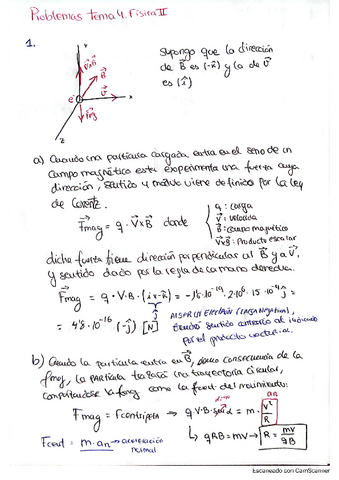 Problemas Tema 4. Física II
1.
Y
V×B
B
e-
V
X
Fmg
Z
Supongo que la dirección
de B es (-k̂) y la de V
es (î)
a) Cuando una partícula cargada entra en el seno de un
campo magnético este experimenta una fuerza cuya
dirección, sentido y módulo viene definido por la ley
de Lorentz.
Fmag = q · V×B donde
q: carga
V: velocidad
B: campo magnético
V×B: Producto escalar
dicha fuerza tiene dirección perpendicular al B y a V,
y sentido dado por la regla de la mano derecha.
Fmag = q · V · B · (i×-k) = -1'6·10⁻¹⁹ · 2·10⁶ · 15·10⁻⁴ ĵ =
= 4'8·10⁻¹⁶ (-ĵ) [N]
AL SER UN ELECTRÓN (CARGA NEGATIVA),
sentido contrario al indicado
por el producto vectorial.
b) Cuando la partícula entra en B, como consecuencia de la
fmag, la partícula trazará una trayectoria circular,
comportándose la fmag como la fcent del movimiento:
Fmag = Fcentrípeta → q·V·B·senα = m· V²/R
an
Fcent = m·an → aceleración
normal
qRB = mV → R = mv/qB
Escaneado con CamScanner